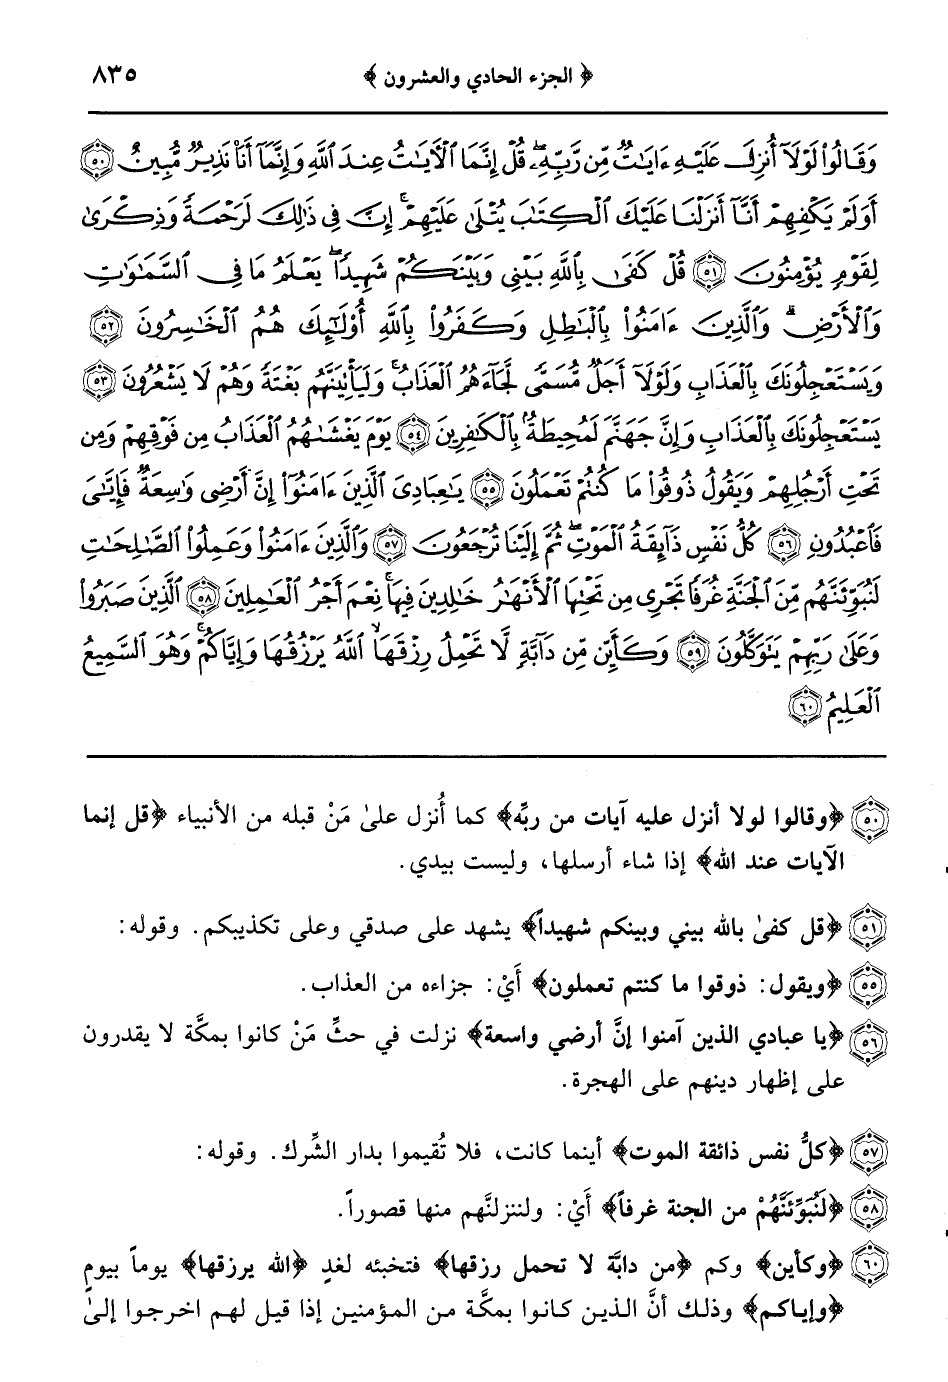 ﴿ الجزء الحادي والعشرون ﴾ ٨٣٥
وَقَالُوا۟ لَوْلَآ أُنزِلَ عَلَيْهِ ءَايَٰتٌ مِّن رَّبِّهِۦ ۖ قُلْ إِنَّمَا ٱلْءَايَٰتُ عِندَ ٱللَّهِ وَإِنَّمَآ أَنَا۠ نَذِيرٌ مُّبِينٌ ٥٠
أَوَلَمْ يَكْفِهِمْ أَنَّآ أَنزَلْنَا عَلَيْكَ ٱلْكِتَٰبَ يُتْلَىٰ عَلَيْهِمْ ۚ إِنَّ فِى ذَٰلِكَ لَرَحْمَةً وَذِكْرَىٰ
لِقَوْمٍ يُؤْمِنُونَ ٥١ قُلْ كَفَىٰ بِٱللَّهِ بَيْنِى وَبَيْنَكُمْ شَهِيدًا ۖ يَعْلَمُ مَا فِى ٱلسَّمَٰوَٰتِ
وَٱلْأَرْضِ ۗ وَٱلَّذِينَ ءَامَنُوا۟ بِٱلْبَٰطِلِ وَكَفَرُوا۟ بِٱللَّهِ أُو۟لَٰٓئِكَ هُمُ ٱلْخَٰسِرُونَ ٥٢
وَيَسْتَعْجِلُونَكَ بِٱلْعَذَابِ ۚ وَلَوْلَآ أَجَلٌ مُّسَمًّى لَّجَآءَهُمُ ٱلْعَذَابُ وَلَيَأْتِيَنَّهُم بَغْتَةً وَهُمْ لَا يَشْعُرُونَ ٥٣
يَسْتَعْجِلُونَكَ بِٱلْعَذَابِ وَإِنَّ جَهَنَّمَ لَمُحِيطَةٌۢ بِٱلْكَٰفِرِينَ ٥٤ يَوْمَ يَغْشَىٰهُمُ ٱلْعَذَابُ مِن فَوْقِهِمْ وَمِن
تَحْتِ أَرْجُلِهِمْ وَيَقُولُ ذُوقُوا۟ مَا كُنتُمْ تَعْمَلُونَ ٥٥ يَٰعِبَادِىَ ٱلَّذِينَ ءَامَنُوٓا۟ إِنَّ أَرْضِى وَٰسِعَةٌ فَإِيَّٰىَ
فَٱعْبُدُونِ ٥٦ كُلُّ نَفْسٍ ذَآئِقَةُ ٱلْمَوْتِ ۖ ثُمَّ إِلَيْنَا تُرْجَعُونَ ٥٧ وَٱلَّذِينَ ءَامَنُوا۟ وَعَمِلُوا۟ ٱلصَّٰلِحَٰتِ
لَنُبَوِّئَنَّهُم مِّنَ ٱلْجَنَّةِ غُرَفًا تَجْرِى مِن تَحْتِهَا ٱلْأَنْهَٰرُ خَٰلِدِينَ فِيهَا ۚ نِعْمَ أَجْرُ ٱلْعَٰمِلِينَ ٥٨ ٱلَّذِينَ صَبَرُوا۟
وَعَلَىٰ رَبِّهِمْ يَتَوَكَّلُونَ ٥٩ وَكَأَيِّن مِّن دَآبَّةٍ لَّا تَحْمِلُ رِزْقَهَا ٱللَّهُ يَرْزُقُهَا وَإِيَّاكُمْ ۚ وَهُوَ ٱلسَّمِيعُ
ٱلْعَلِيمُ ٦٠
٥٠ ﴿وقالوا لولا أنزل عليه آيات من ربِّه﴾ كما أُنزل علىٰ مَنْ قبله من الأنبياء ﴿قل إنما
الآيات عند الله﴾ إذا شاء أرسلها، وليست بيدي.
٥١ ﴿قل كفىٰ بالله بيني وبينكم شهيداً﴾ يشهد على صدقي وعلى تكذيبكم. وقوله:
٥٥ ﴿ويقول: ذوقوا ما كنتم تعملون﴾ أَيْ: جزاءه من العذاب.
٥٦ ﴿يا عبادي الذين آمنوا إنَّ أرضي واسعة﴾ نزلت في حثِّ مَنْ كانوا بمكَّة لا يقدرون
على إظهار دينهم على الهجرة.
٥٧ ﴿كلُّ نفس ذائقة الموت﴾ أينما كانت، فلا تُقيموا بدار الشِّرك. وقوله:
٥٨ ﴿لَنُبَوِّئَنَّهُمْ من الجنة غرفاً﴾ أَيْ: ولننزلنَّهم منها قصوراً.
٦٠ ﴿وكأين﴾ وكم ﴿من دابَّة لا تحمل رزقها﴾ فتخبئه لغدٍ ﴿الله يرزقها﴾ يوماً بيومٍ
﴿وإياكم﴾ وذلك أنَّ الذين كانوا بمكَّة من المؤمنين إذا قيل لهم اخرجوا إلىٰ